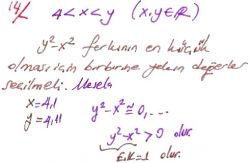 14/ 4<x<y (x,y∈ℝ)
y²-x² farkının en küçük
olması için birbirine yakın değerler
seçilmeli. Mesela
x=4,1 y²-x²≅0,...
y=4,11
y²-x²>0 olur.
E.K=1 olur.